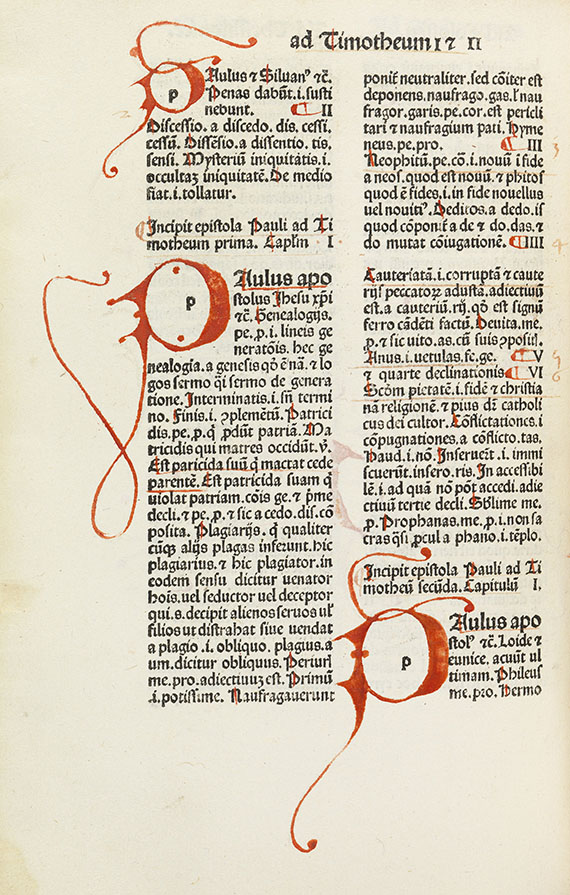 ad Timotheum I ⁊ II
PAulus ⁊ Siluan⁹ ⁊c̄.
Penas dabūt .i. susti
nebunt. II
Discessio. a discedo. dis. cessi.
cessū. Dissēsio. a dissentio. tis.
sensi. Mysteriū iniquitatis .i.
occultaꝫ iniquitatē. De medio
fiat .i. tollatur.
Incipit epistola Pauli ad Ti
motheum prima. Caplm̄ I.
PAulus apo
stolus Jhesu xp̄i
⁊c̄. Genealogijs.
pe. p. i. lineis ge
neratōis. hec ge
nealogia. a genesis qō ē nā. ⁊ lo
gos sermo q̄i sermo de genera
tione. Interminatis .i. sn̄ termi
no. Finis .i. ꝯplemētū. Patrici
dis. pe. p. q̇ ꝑdūt patriā. Ma
tricidis qui matres occidūt. v̄.
Est paricida suū q̇ mactat cede
parentē. Est patricida suam q̇
violat patriam. cōis ge. ⁊ p̄me
decli. ⁊ pe. p. ⁊ sic a cedo. dis. cō
posita. Plagiarijs. q̇ qualiter
cūqꝫ alijs plagas inferunt. hic
plagiarius. ⁊ hic plagiator. in
eodem sensu dicitur venator
hoīs. vel seductor vel deceptor
qui. s. decipit alienos seruos ul̓
filios ut distrahat siue vendat
a plagio .i. obliquo. plagius. a
um. dicitur obliquus. Periuri
me. pro. adiectiuuꝫ est. Primū
.i. potissime. Naufragauerunt
ponit̄ neutraliter. sed cōiter est
deponens. naufrago. gas. l̓ nau
fragor. garis. pe. cor. est pericli
tari ⁊ naufragium pati. Hyme
neus. pe. pro. III
Neophitū. pe. cō .i. nouū ī fide
a neos. quod est nouū. ⁊ phitos
quod ē fides .i. in fide nouellus
uel nouiti⁹. Deditos. a dedo. is
quod cōponit̄ a de ⁊ do. das. ⁊
do mutat cōiugationē. IIII
Cauteriatā .i. corruptā ⁊ caute
rijs peccatoꝝ adusta. adiectiuū
est. a cauteriū. rij. qō est signū
ferro cādēti factū. Deuita. me.
p. ⁊ sic vito. as. cū suis ꝯposit.
Anus .i. vetulas. fe. ge. V
⁊ quarte declinationis VI
Scōm pietatē .i. fidē ⁊ christia
nā religionē. ⁊ pius dn̄ catholi
cus dei cultor. Cōflictationes .i
cōpugnationes. a cōflicto. tas.
Haud .i. nō. Inseruerūt .i. immi
scuerūt. insero. ris. In accessibi
lē .i. ad quā nō pōt accedi. adie
ctiuū tertie decli. Sublime. me.
p. Prophanas. me. p. i. non sa
cras q̄si ꝓcul a phano .i. tēplo.
Incipit epistola Pauli ad Ti
motheū secūda. Capitulū I.
PAulus apo
stol⁹ ⁊c̄. Loide ⁊
eunice. acuūt ul
timam. Phileus
me. pro. Hermo